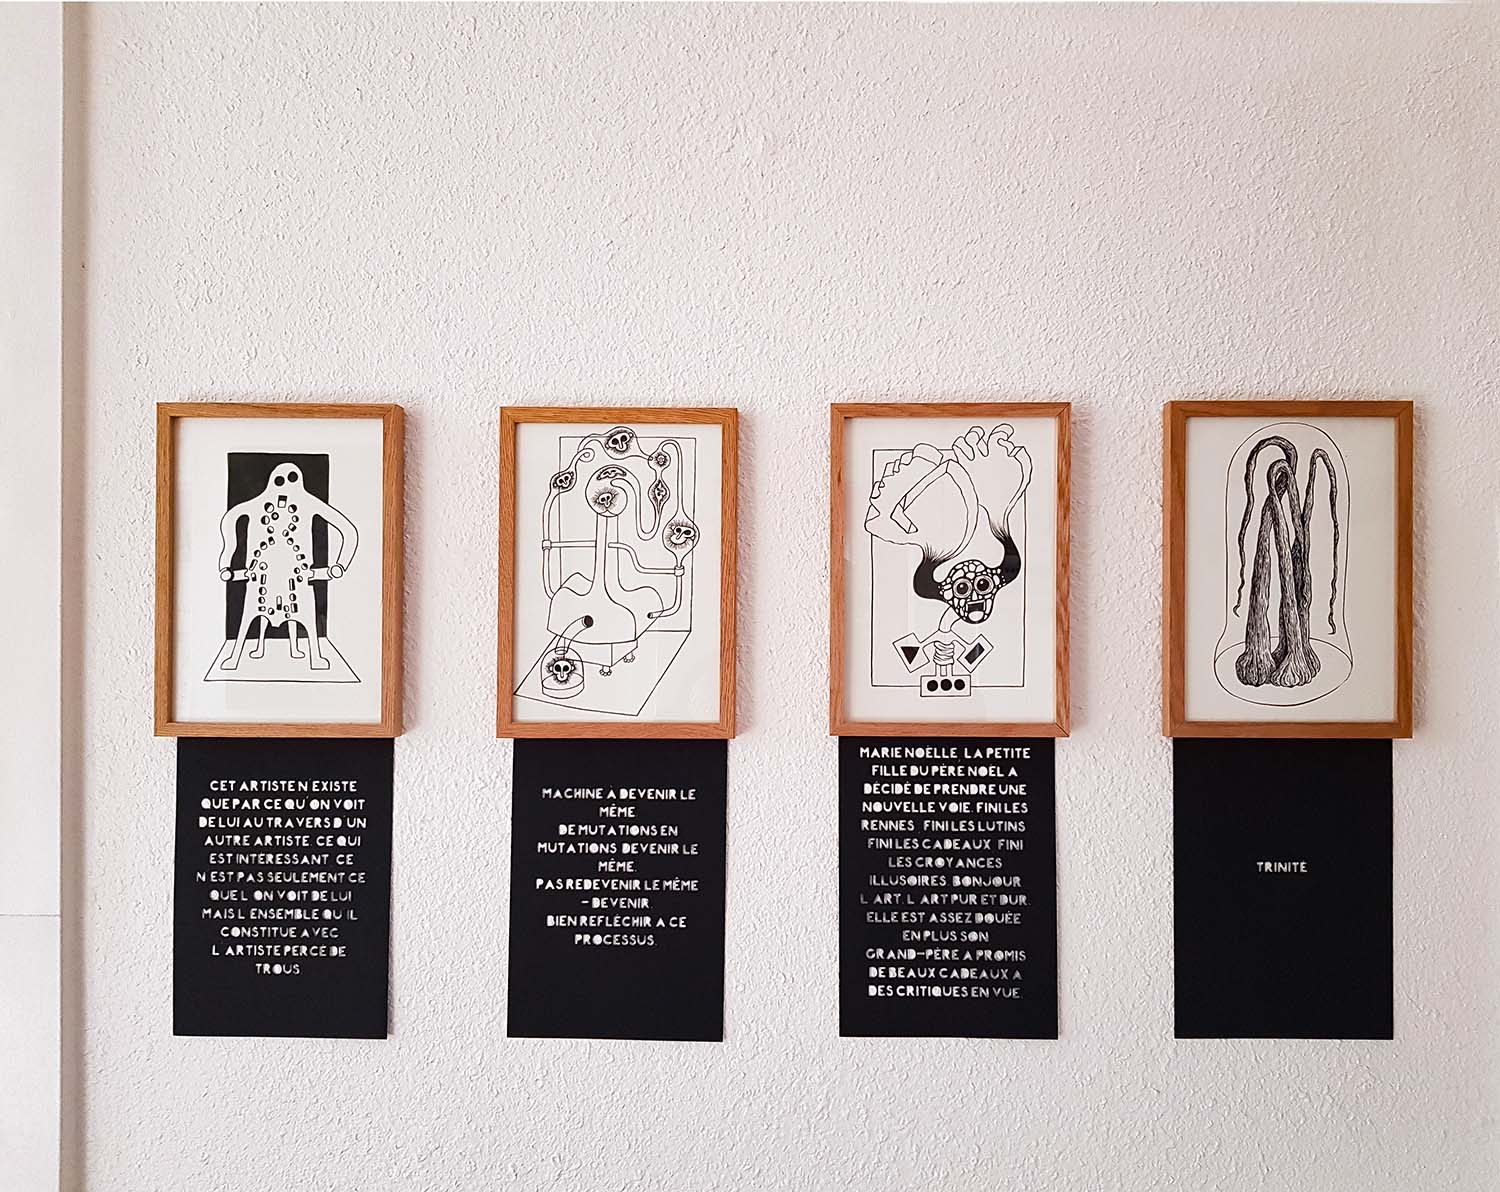 CET ARTISTE N'EXISTE
QUE PAR CE QU'ON VOIT
DE LUI AU TRAVERS D'UN
AUTRE ARTISTE. CE QUI
EST INTÉRESSANT CE
N EST PAS SEULEMENT CE
QUE L ON VOIT DE LUI
MAIS L ENSEMBLE QU IL
CONSTITUE AVEC
L ARTISTE PERCÉ DE
TROUS
MACHINE À DEVENIR LE
MÊME.
DE MUTATIONS EN
MUTATIONS DEVENIR LE
MÊME.
PAS REDEVENIR LE MÊME
- DEVENIR.
BIEN REFLÉCHIR A CE
PROCESSUS.
MARIE NOËLLE, LA PETITE
FILLE DU PÈRE NOËL A
DÉCIDÉ DE PRENDRE UNE
NOUVELLE VOIE. FINI LES
RENNES, FINI LES LUTINS
FINI LES CADEAUX, FINI
LES CROYANCES
ILLUSOIRES. BONJOUR
L ART. L ART PUR ET DUR.
ELLE EST ASSEZ DOUÉE
EN PLUS SON
GRAND-PÈRE A PROMIS
DE BEAUX CADEAUX A
DES CRITIQUES EN VUE.
TRINITÉ